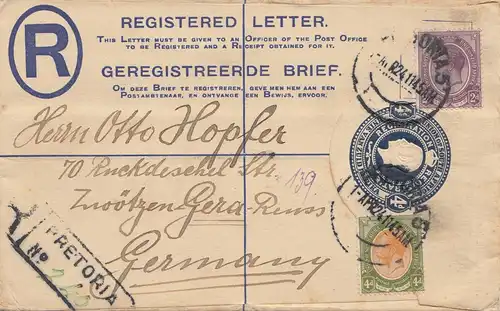 REGISTERED LETTER.
THIS LETTER MUST BE GIVEN TO AN OFFICER OF THE POST OFFICE
TO BE REGISTERED AND A RECEIPT OBTAINED FOR IT.
R
GEREGISTREERDE BRIEF.
OM DEZE BRIEF TE REGISTREREN, GEVE MEN HEM AAN EEN
POSTAMBTENAAR, EN ONTVANGE EEN BEWIJS, ERVOOR.
Herrn Otto Hopfer
70 Ruckdeschel Str.
Zwötzen-Gera-Reuss
Germany
139
PRETORIA
No
REGISTRATION
2d
4d
4d